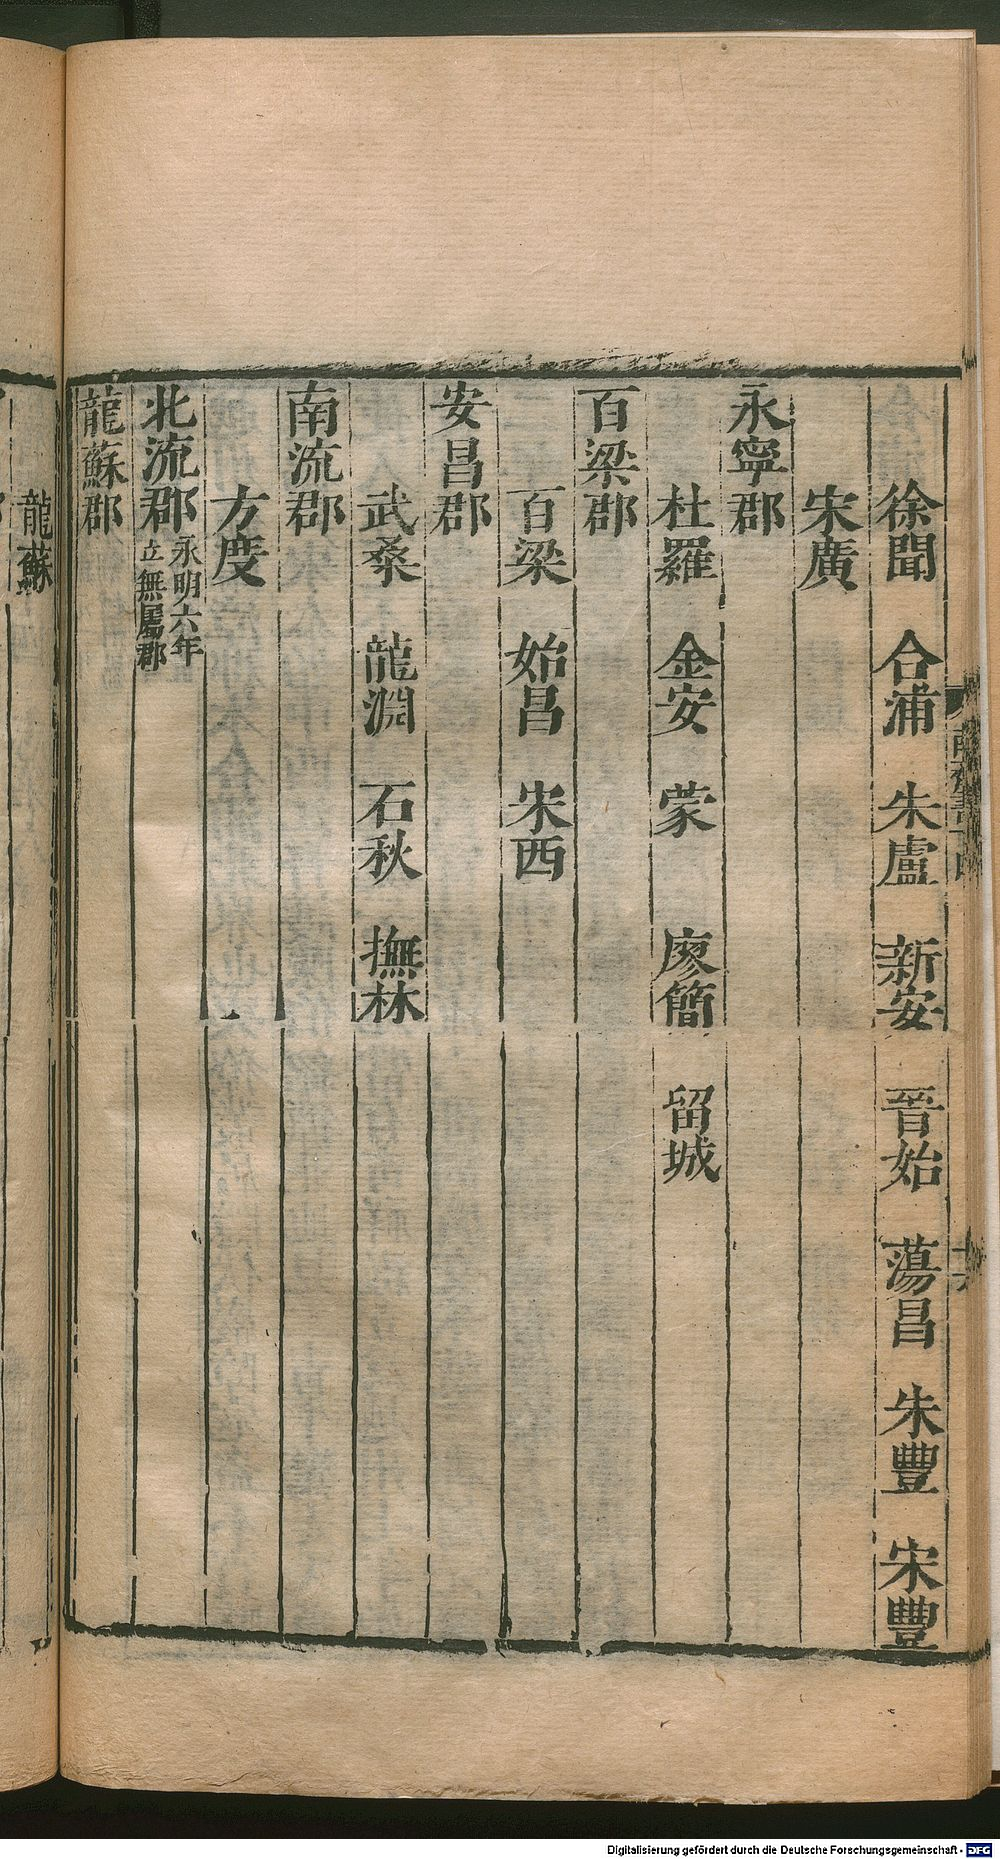 徐聞 合浦 朱盧 新安 晉始 蕩昌 朱豐 宋豐
宋廣
永寧郡
杜羅 金安 蒙 廖簡 留城
百梁郡
百梁 始昌 宋西
安昌郡
武桑 龍淵 石秋 撫林
南流郡
方度
北流郡 永明六年
立無屬郡
龍蘇郡
龍蘇
Digitalisierung gefördert durch die Deutsche Forschungsgemeinschaft - DFG